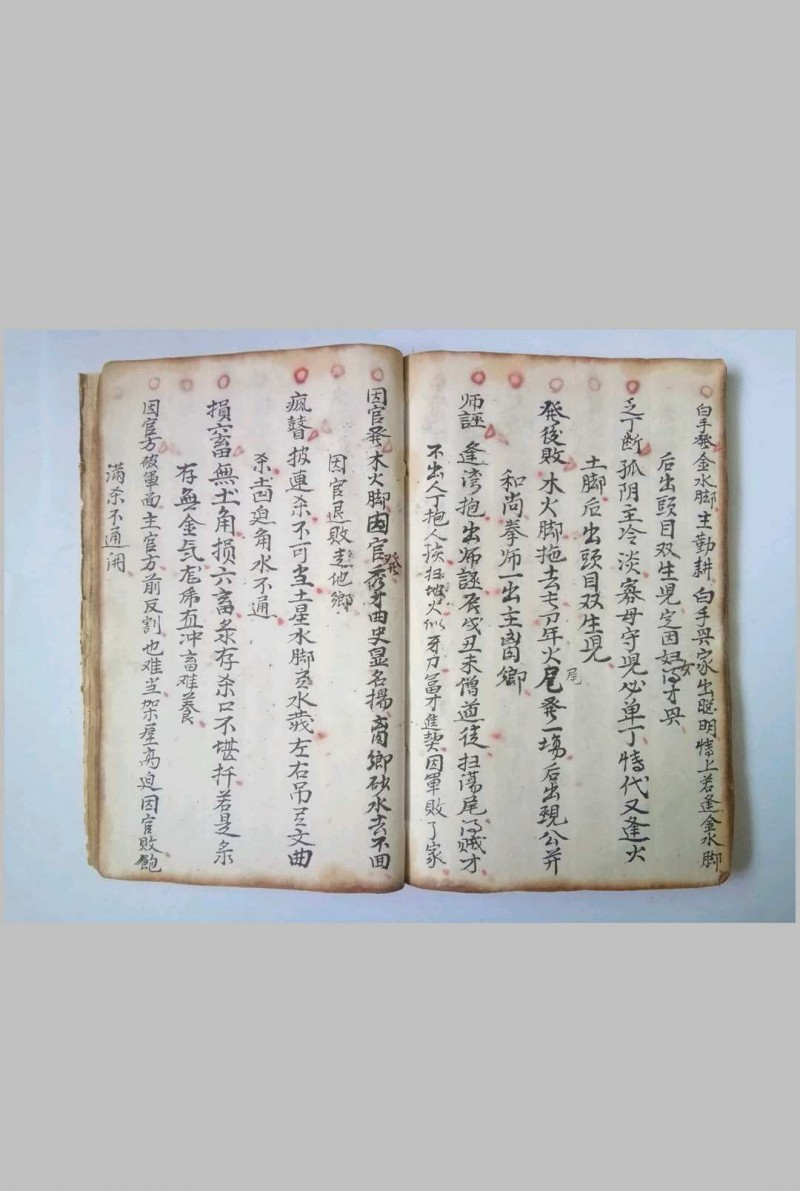 白手發金水脚主勤耕白手興家出聪明特上若逢金水脚
后出頭目双生児定因妇女淂才興
乏丁断孤阴主冷淡寡母守児必单丁特代又逢火
土脚后出頭目双生児
發後敗木火脚拖去七刀年火尾発一塲后出現公并
和尚拳师一出主離鄉
师誣逢湾抱出师誣辰戌丑未僧道後扫蕩尾淂贼才
不出人丁抱人孩扫地火似牙刀富才進契因軍敗了家
因官發木火脚因官發秀才曲史显名揚离鄉砂水去不回
因官退敗走他鄉
瘋瞽披連杀不可当土星水脚左右吊文曲
杀迫角水不通
損六畜無土角損六畜条存杀口不堪扦若是条
存無金気冲畜难養
因官方破軍面主官方前反割也难当架屋高迫因官敗飽
滿杀不通開